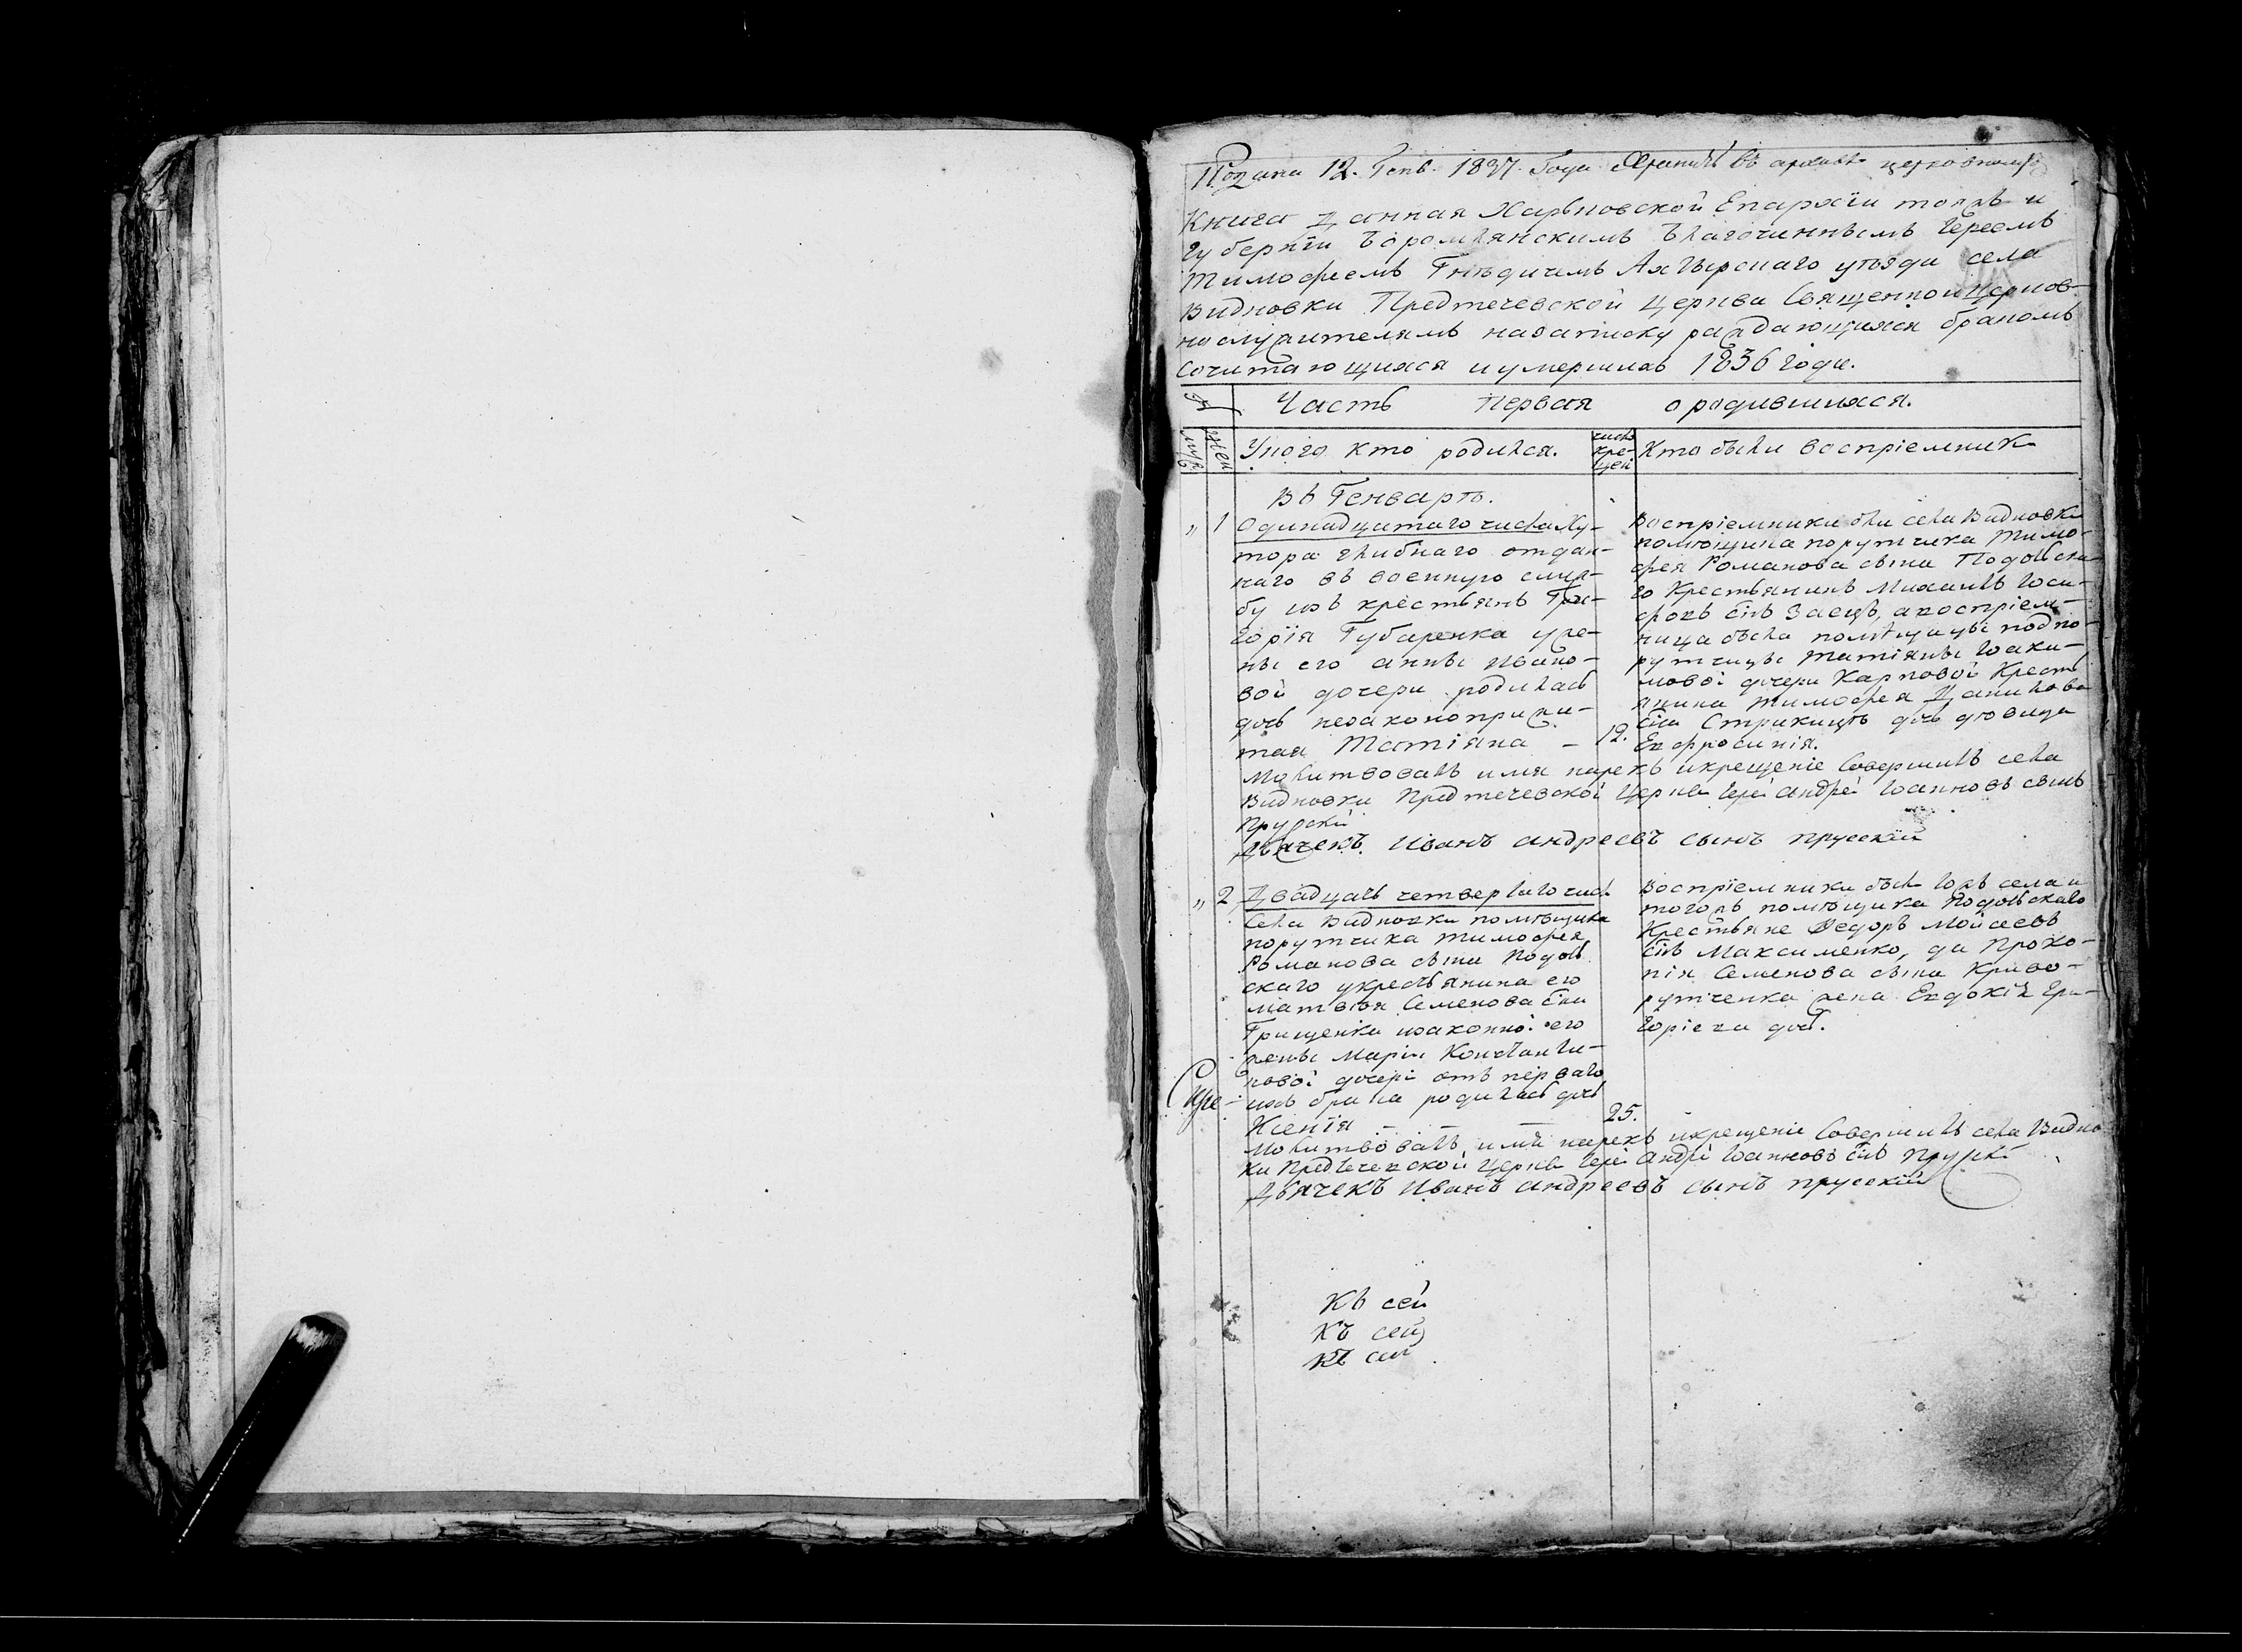 Подана 12. Генв. 1837. Года Хранить въ архивѣ церковномъ
Книга Данная Харьковской Епархіи тояжъ и
Губерніи Боромлянскимъ Благочиннымъ Іереемъ
Тимофеемъ Гнѣдичемъ Ахтырскаго уѣзда села
Видновки Предтечевской Церкви Священноицерков-
нослужителямъ назаписку раждающихся бракомъ
Сочитающихся и умершихъ 1836 года.
Часть Первая о родившихся.
муж
жен
Укого кто родился.
число
кре-
щен
Кто были воспріемник
Въ Генварѣ.
" 1 Одинадцатаго числа Ху-
тора глибнаго отдан-
наго въ военную служ-
бу изъ крестьянъ Гри-
горія Губаренка уже-
ны его анны Ивано-
вой дочери родилась
дочь незаконоприжи-
тая Татіяна — 12.
Воспріемники бли села Видновки
помѣщика порутчика Тимо-
фея Романова сына Подольска-
го Крестьянинъ Михаилъ Іоси-
фовъ снъ Заецъ, а воспріем-
ница была помѣщицы подпо-
рутчицы Татіяны Іоаки-
мовой дочери Карповой Крест
янина Тимофея Данилова
сна Стрижицъ дочь дѣвица
Евфросинія.
Молитвовалъ имя нарекъ икрещеніе Совершилъ села
Видновки Предтечевской Церкви Іерей андрей Іоанновъ сынъ
Прускій
Дьячекъ. Иванъ андреевъ сынъ прусскій
" 2 Двадцать четвертаго числ
Села Видновки помѣщика
порутчика Тимофея
Романова сына Подоль
скаго укрестьянина его
Матвѣя Семенова сна
Грищенка изаконной его
жены Маріи Константи-
новой дочери отъ перваго
ихъ брака родилась дочь
Ксенія — — — 25.
Воспріемники были тожъ села и
тогожъ помѣщика Подольскаго
Крестьяне Федоръ Мойсеевъ
снъ Максименко, да Проко-
пія Семенова сына Криво-
рутченка жена Евдокія Гри-
горіева дочь.
Молитвовалъ имя нарекъ икрещеніе Совершилъ села Видно
ки Предтечевской Церкви Іерей Андрей Іоанновъ снъ Прускій
Дьячекъ Иванъ андреевъ сынъ прусскій
Къ сей
Къ сей
Къ сей